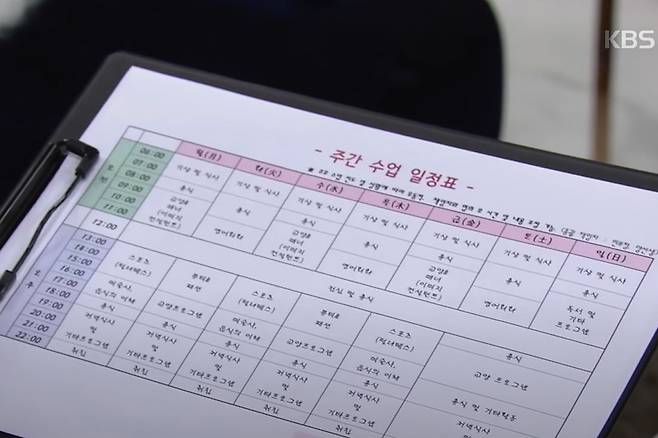 KBS
- 주간 수업 일정표 -
월(月)
화(火)
수(水)
목(木)
금(金)
토(土)
일(日)
오전
06:00
07:00
08:00
09:00
10:00
11:00
12:00
오후
13:00
14:00
15:00
16:00
17:00
18:00
19:00
20:00
21:00
22:00
기상 및 식사
기상 및 식사
기상 및 식사
기상 및 식사
기상 및 식사
기상 및 식사
기상 및 식사
휴식
휴식
휴식
휴식
휴식
휴식
휴식
교양&
매너
(이미지
컨설턴트)
영어회화
교양&
매너
(이미지
컨설턴트)
영어회화
교양&
매너
(이미지
컨설턴트)
영어회화
독서 및
기타
프로그램
점심 및 휴식
스포츠
(휘트니스)
뷰티&
패션
스포츠
(휘트니스)
뷰티&
패션
스포츠
(휘트니스)
휴식
예술사,
음식의 이해
교양프로그램
예술사,
음식의 이해
교양프로그램
예술사,
음식의 이해
교양 프로그램
저녁식사
및
기타프로그램
저녁식사
및
기타프로그램
저녁식사
및
기타프로그램
저녁식사
및
기타프로그램
저녁식사
휴식 및 기타활동
취침
취침
취침
취침
취침